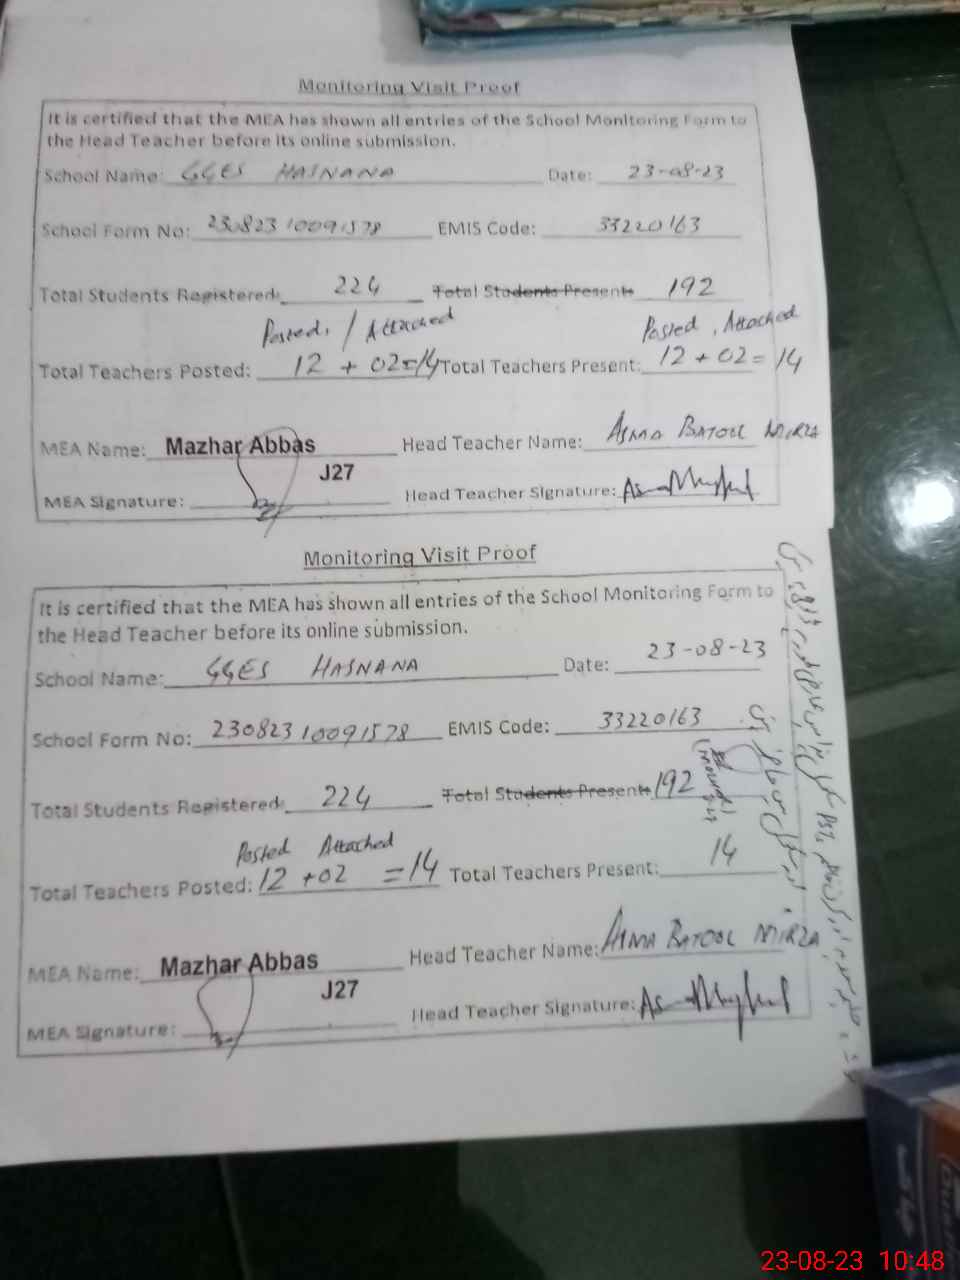 Monitoring Visit Proof
It is certified that the MEA has shown all entries of the School Monitoring Form to
the Head Teacher before its online submission.
School Name: GGES HASNANA Date: 23-08-23
School Form No: 23082310091578 EMIS Code: 33220163
Total Students Registered: 224 Total Students Present: 192
Posted / Attached Posted, Attached
Total Teachers Posted: 12 + 02=14 Total Teachers Present: 12 + 02 = 14
MEA Name: Mazhar Abbas Head Teacher Name: ASMA BATOOL MIRZA
J27
MEA Signature: Head Teacher Signature:
Monitoring Visit Proof
It is certified that the MEA has shown all entries of the School Monitoring Form to
the Head Teacher before its online submission.
School Name: GGES HASNANA Date: 23-08-23
School Form No: 23082310091578 EMIS Code: 33220163
Total Students Registered: 224 Total Students Present: 192
Posted Attached
Total Teachers Posted: 12 +02 =14 Total Teachers Present: 14
MEA Name: Mazhar Abbas Head Teacher Name: ASMA BATOOL MIRZA
J27
MEA Signature: Head Teacher Signature:
23-08-23 10:48